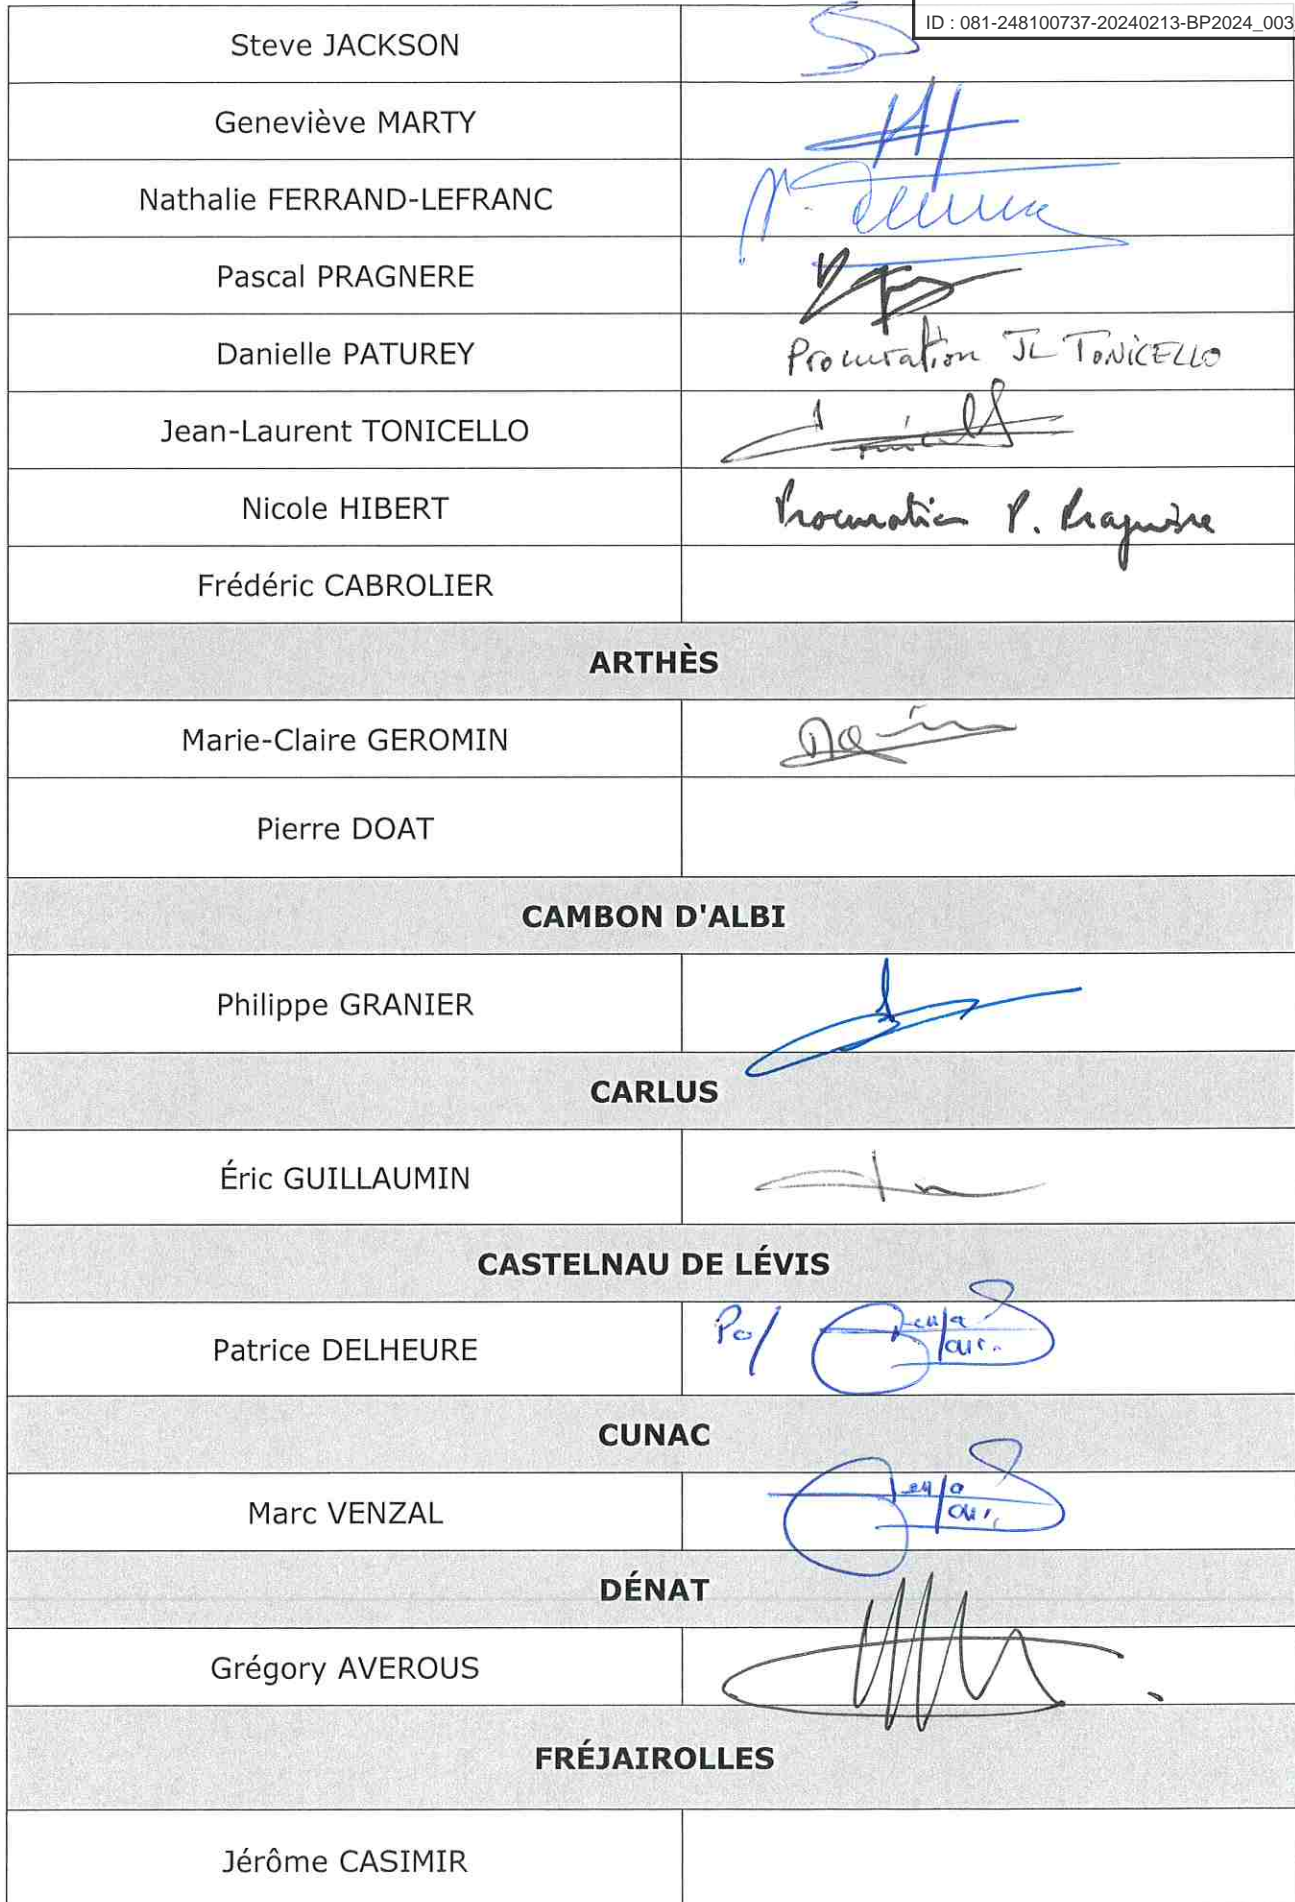 ID : 081-248100737-20240213-BP2024_003
Steve JACKSON
Geneviève MARTY
Nathalie FERRAND-LEFRANC
Pascal PRAGNERE
Danielle PATUREY Procuration JL TONICELLO
Jean-Laurent TONICELLO
Nicole HIBERT Procuration P. Pragnère
Frédéric CABROLIER
ARTHÈS
Marie-Claire GEROMIN
Pierre DOAT
CAMBON D'ALBI
Philippe GRANIER
CARLUS
Éric GUILLAUMIN
CASTELNAU DE LÉVIS
Patrice DELHEURE
CUNAC
Marc VENZAL
DÉNAT
Grégory AVEROUS
FRÉJAIROLLES
Jérôme CASIMIR